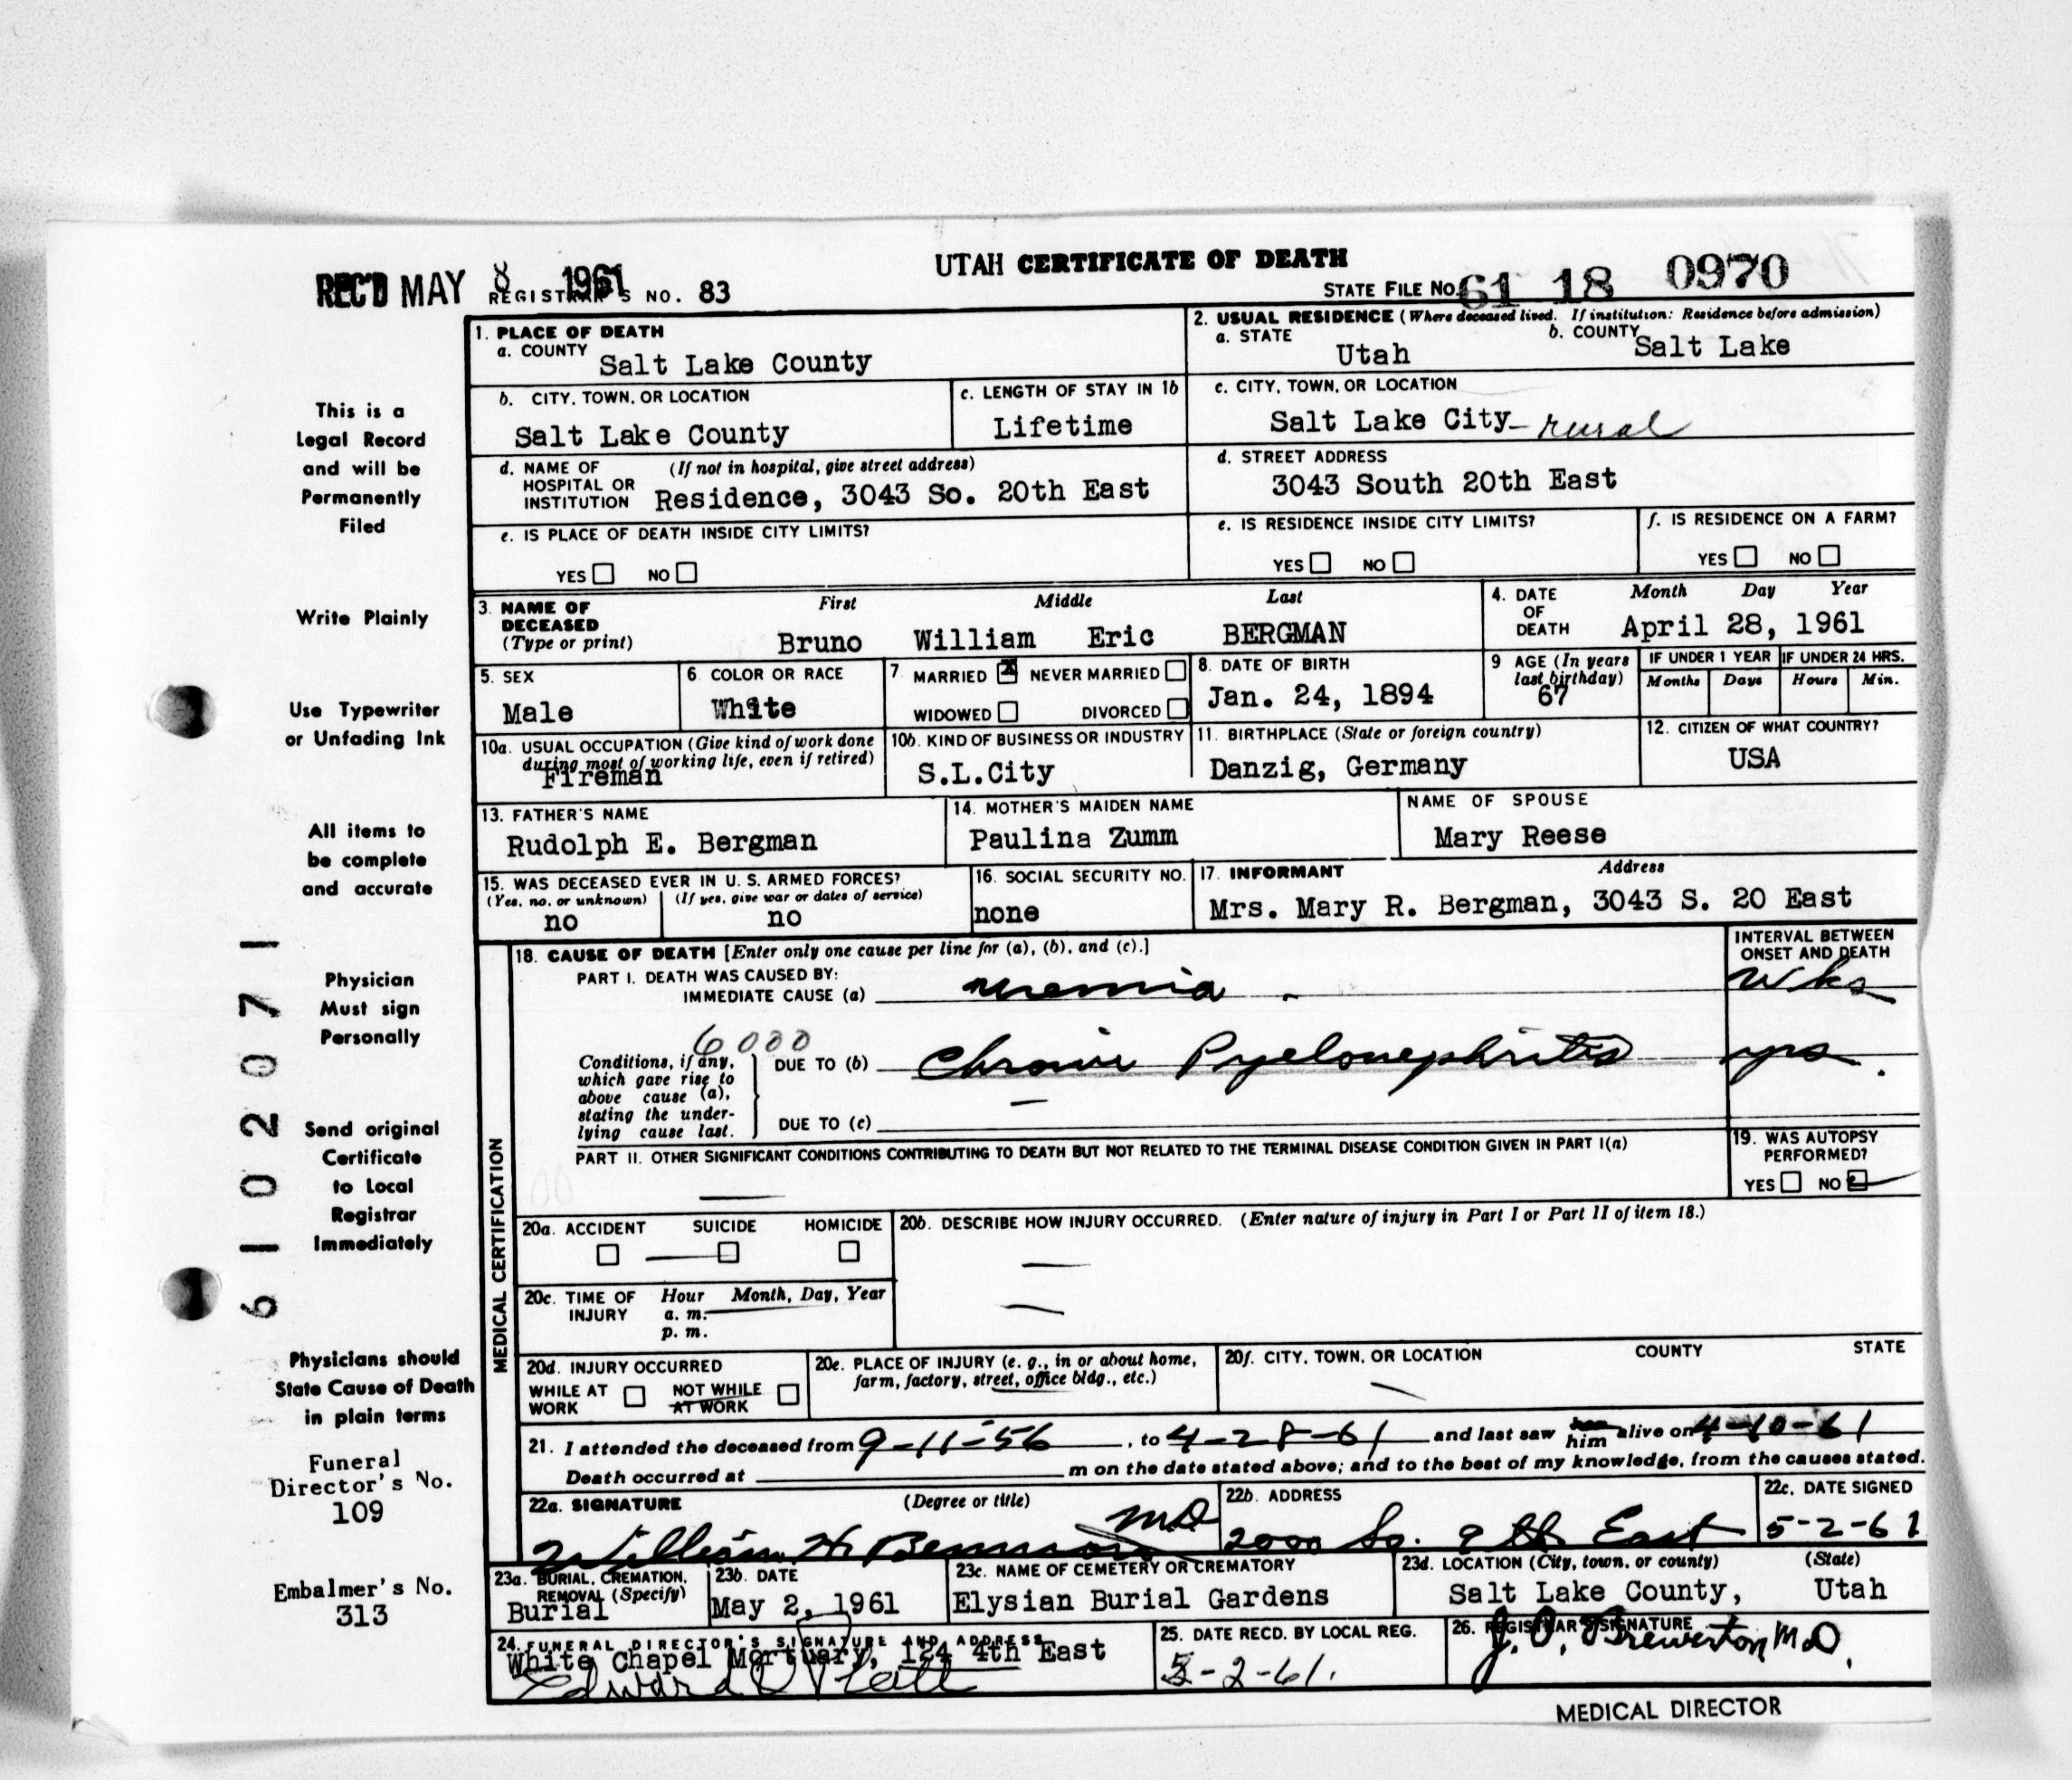 UTAH CERTIFICATE OF DEATH
REC'D MAY 8 1961
REGISTRAR'S NO. 83
STATE FILE NO. 61 18 0970
1. PLACE OF DEATH
a. COUNTY Salt Lake County
2. USUAL RESIDENCE (Where deceased lived. If institution: Residence before admission)
a. STATE Utah b. COUNTY Salt Lake
b. CITY, TOWN, OR LOCATION Salt Lake County
c. LENGTH OF STAY IN 1b Lifetime
c. CITY, TOWN, OR LOCATION Salt Lake City - rural
d. NAME OF HOSPITAL OR INSTITUTION (If not in hospital, give street address) Residence, 3043 So. 20th East
d. STREET ADDRESS 3043 South 20th East
e. IS PLACE OF DEATH INSIDE CITY LIMITS? YES NO
e. IS RESIDENCE INSIDE CITY LIMITS? YES NO
f. IS RESIDENCE ON A FARM? YES NO
3. NAME OF DECEASED (Type or print) First Middle Last
Bruno William Eric BERGMAN
4. DATE OF DEATH Month Day Year
April 28, 1961
5. SEX Male
6. COLOR OR RACE White
7. MARRIED X NEVER MARRIED
WIDOWED DIVORCED
8. DATE OF BIRTH Jan. 24, 1894
9 AGE (In years last birthday) 67
IF UNDER 1 YEAR Months Days
IF UNDER 24 HRS. Hours Min.
10a. USUAL OCCUPATION (Give kind of work done during most of working life, even if retired) Fireman
10b. KIND OF BUSINESS OR INDUSTRY S.L.City
11. BIRTHPLACE (State or foreign country) Danzig, Germany
12. CITIZEN OF WHAT COUNTRY? USA
13. FATHER'S NAME Rudolph E. Bergman
14. MOTHER'S MAIDEN NAME Paulina Zumm
NAME OF SPOUSE Mary Reese
15. WAS DECEASED EVER IN U. S. ARMED FORCES?
(Yes, no, or unknown) no
(If yes, give war or dates of service) no
16. SOCIAL SECURITY NO. none
17. INFORMANT Address
Mrs. Mary R. Bergman, 3043 S. 20 East
MEDICAL CERTIFICATION
18. CAUSE OF DEATH [Enter only one cause per line for (a), (b), and (c).]
INTERVAL BETWEEN ONSET AND DEATH
PART I. DEATH WAS CAUSED BY:
IMMEDIATE CAUSE (a) uremia wks
6000
Conditions, if any, which gave rise to above cause (a), stating the underlying cause last.
DUE TO (b) Chronic Pyelonephritis yrs.
DUE TO (c)
PART II. OTHER SIGNIFICANT CONDITIONS CONTRIBUTING TO DEATH BUT NOT RELATED TO THE TERMINAL DISEASE CONDITION GIVEN IN PART I(a)
19. WAS AUTOPSY PERFORMED?
YES NO
20a. ACCIDENT SUICIDE HOMICIDE
20b. DESCRIBE HOW INJURY OCCURRED. (Enter nature of injury in Part I or Part II of item 18.)
20c. TIME OF INJURY Hour Month, Day, Year
a. m.
p. m.
20d. INJURY OCCURRED
WHILE AT WORK NOT WHILE AT WORK
20e. PLACE OF INJURY (e. g., in or about home, farm, factory, street, office bldg., etc.)
20f. CITY, TOWN, OR LOCATION COUNTY STATE
21. I attended the deceased from 9-11-56, to 4-28-61 and last saw him alive on 4-10-61
Death occurred at m on the date stated above; and to the best of my knowledge, from the causes stated.
22a. SIGNATURE (Degree or title)
William H. MD
22b. ADDRESS 2000 So. 9th East
22c. DATE SIGNED 5-2-61
23a. BURIAL, CREMATION, REMOVAL (Specify) Burial
23b. DATE May 2, 1961
23c. NAME OF CEMETERY OR CREMATORY Elysian Burial Gardens
23d. LOCATION (City, town, or county) (State) Salt Lake County, Utah
24. FUNERAL DIRECTOR'S SIGNATURE AND ADDRESS
White Chapel Mortuary, 124 4th East
Edward
25. DATE RECD. BY LOCAL REG. 5-2-61.
26. REGISTRAR'S SIGNATURE J. O. Brewerton M.D.
MEDICAL DIRECTOR
This is a
Legal Record
and will be
Permanently
Filed
Write Plainly
Use Typewriter
or Unfading Ink
All items to
be complete
and accurate
Physician
Must sign
Personally
Send original
Certificate
to Local
Registrar
Immediately
Physicians should
State Cause of Death
in plain terms
Funeral
Director's No.
109
Embalmer's No.
313
6102071